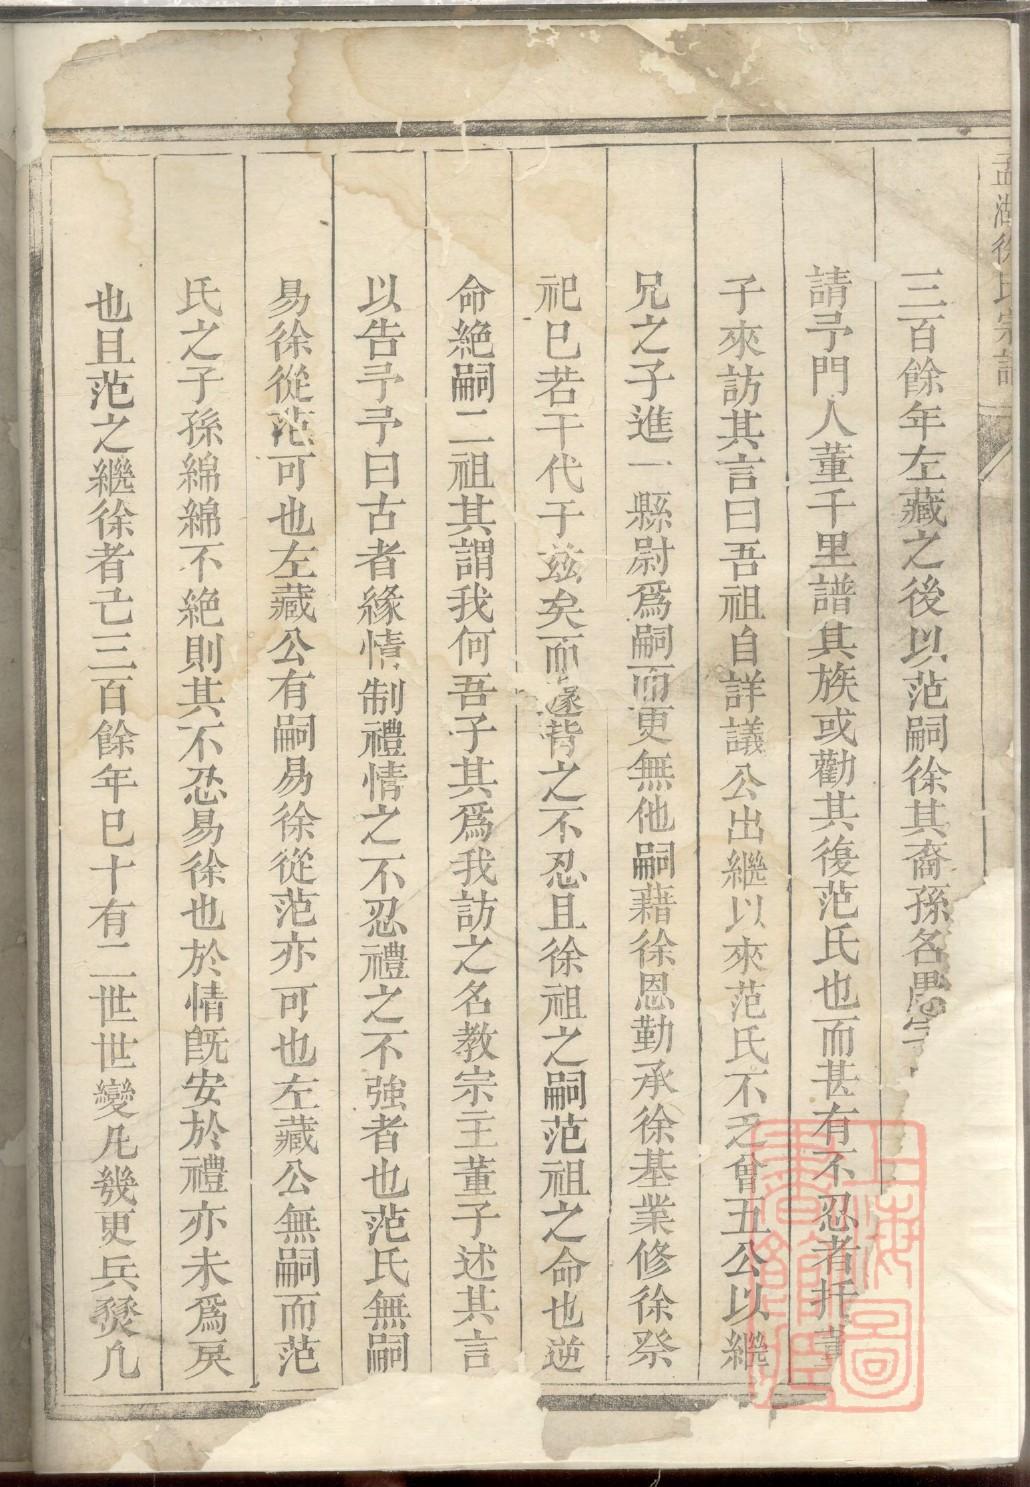 孟湖徐氏宗譜
三百餘年左藏之後以范嗣徐其裔孫名愚
請予門人董千里譜其族或勸其復范氏也而甚有不忍者托董
子來訪其言曰吾祖自詳議公出繼以來范氏不乏會五公以繼
兄之子進一縣尉爲嗣而更無他嗣藉徐恩勤承徐基業修徐祭
祀巳若干代于兹矣而遂背之不忍且徐祖之嗣范祖之命也逆
命絶嗣二祖其謂我何吾子其爲我訪之名教宗主董子述其言
以告予予曰古者緣情制禮情之不忍禮之不強者也范氏無嗣
易徐從范可也左藏公有嗣易徐從范亦可也左藏公無嗣而范
氏之子孫綿綿不絶則其不忍易徐也於情既安於禮亦未爲戾
也且范之繼徐者已三百餘年巳十有二世世變凡幾更兵燹凡
上海圖書館藏